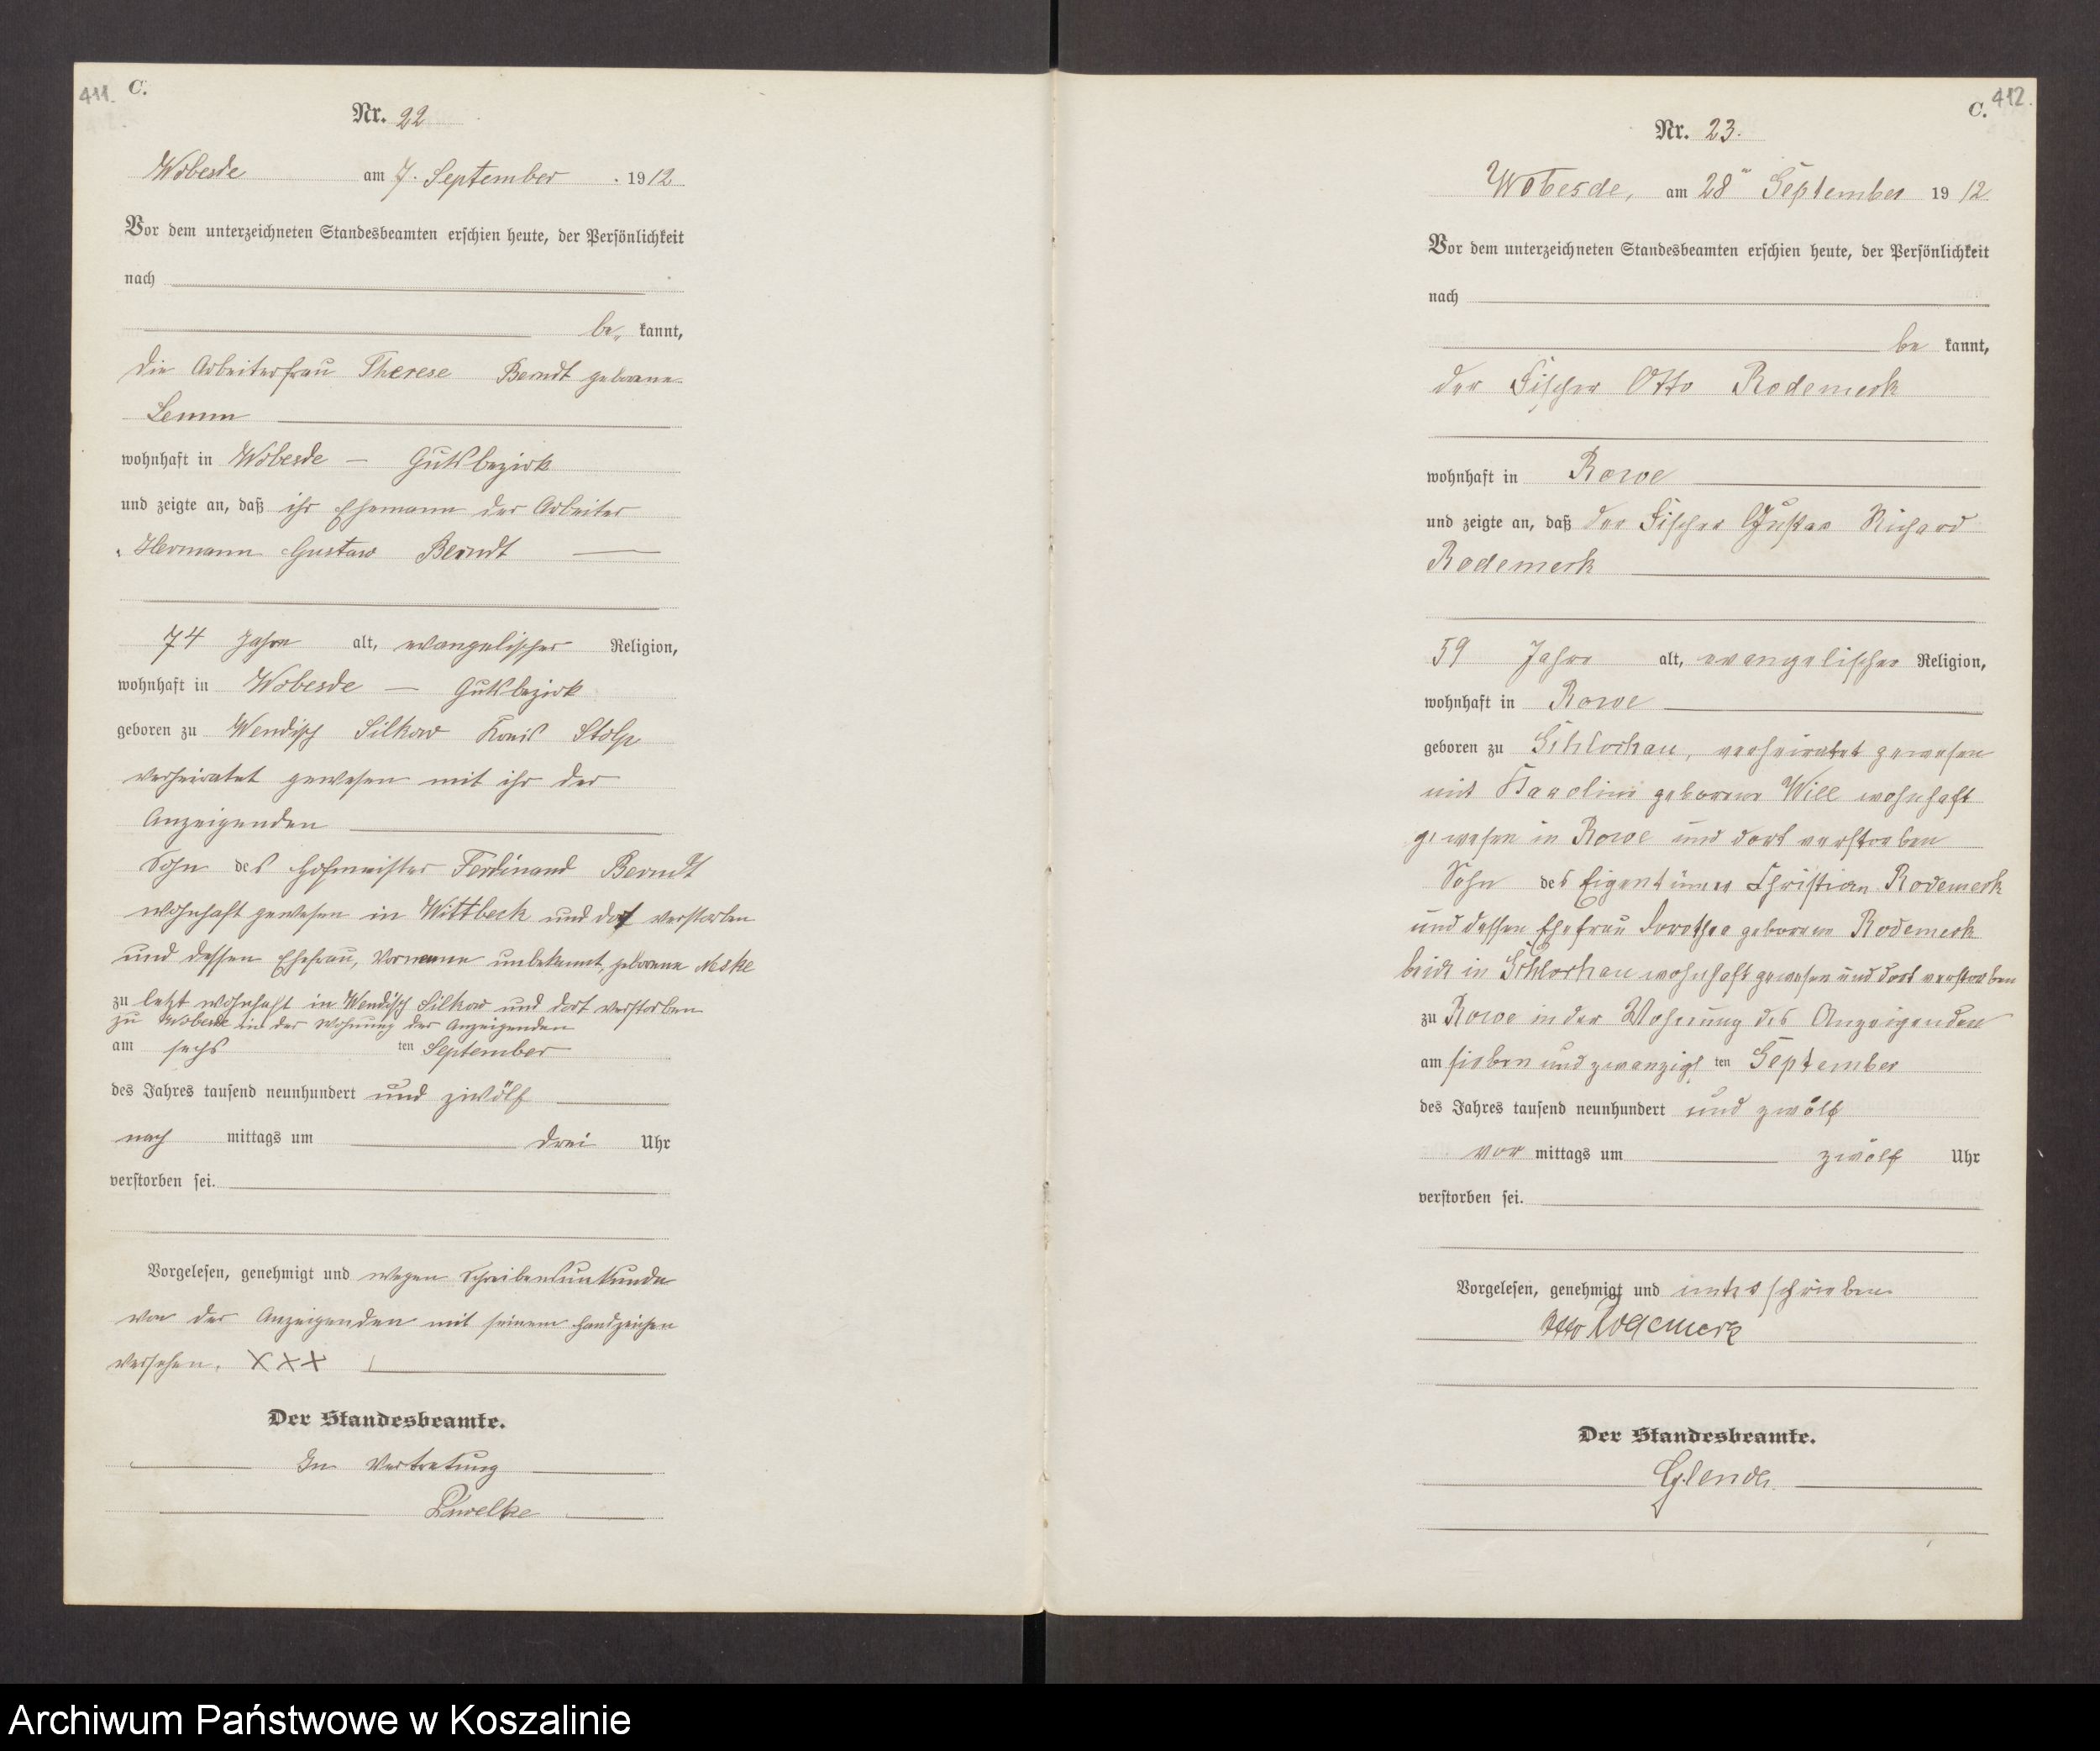 411. C.
Nr. 22
Wobesde am 7. September 1912
Vor dem unterzeichneten Standesbeamten erschien heute, der Persönlichkeit
nach
be kannt,
die Arbeiterfrau Therese Berndt geborene
Lemm
wohnhaft in Wobesde — Gutsbezirk
und zeigte an, daß ihr Ehemann der Arbeiter
Hermann Gustav Berndt
74 Jahre alt, evangelischer Religion,
wohnhaft in Wobesde — Gutsbezirk
geboren zu Wendisch Silkow Kreis Stolp
verheiratet gewesen mit ihr der
Anzeigenden
Sohn des Hofmeister Ferdinand Berndt
wohnhaft gewesen in Wittbeck und dort verstorben
und dessen Ehefrau, Vorname unbekannt, geborene Neske
zu letzt wohnhaft in Wendisch Silkow und dort verstorben
zu Wobesde in der Wohnung der Anzeigenden
am sechs ten September
des Jahres tausend neunhundert und zwölf
nach mittags um drei Uhr
verstorben sei.
Vorgelesen, genehmigt und wegen Schreibensunkunde
von der Anzeigenden mit seinem Handzeichen
versehen. XXX
Der Standesbeamte.
In Vertretung
C. 412.
Nr. 23.
Wobesde, am 28ten September 1912
Vor dem unterzeichneten Standesbeamten erschien heute, der Persönlichkeit
nach
be kannt,
der Fischer Otto Rodemerk
wohnhaft in Rowe
und zeigte an, daß der Fischer Gustav Richard
Rodemerk
59 Jahre alt, evangelischer Religion,
wohnhaft in Rowe
geboren zu Schlochau, verheiratet gewesen
mit Karoline geborene Will wohnhaft
gewesen in Rowe und dort verstorben
Sohn des Eigentümer Christian Rodemerk
und dessen Ehefrau Dorothee geborene Rodemerk
beide in Schlochau wohnhaft gewesen und dort verstorben
zu Rowe in der Wohnung des Anzeigenden
am sieben und zwanzigs ten September
des Jahres tausend neunhundert und zwölf
vor mittags um zwölf Uhr
verstorben sei.
Vorgelesen, genehmigt und unterschrieben
Otto Rodemerk
Der Standesbeamte.
Archiwum Państwowe w Koszalinie